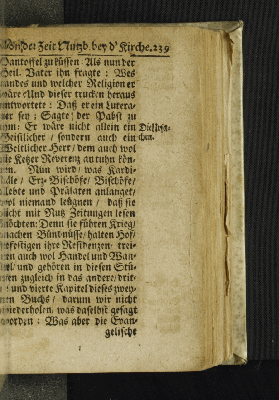 Von der Zeit. Nutzb. bey d' Kirche. 239
Pantoffel zu küssen. Als nun der
Heil. Vater ihn fragte: Wes
Landes und welcher Religion er
wäre? Und dieser trucken heraus
antwortete: Daß er ein Lutera-
ner sey; Sagte der Pabst zu
ihm: Er wäre nicht allein ein
Geistlicher / sondern auch ein
Weltlicher Herr / dem auch wol
die Ketzer Reverenz anthun kön-
nen. Nun wird / was Kardi-
näle / Erz-Bischöfe / Bischöfe /
Aebte und Prälaten anlanget /
wol niemand leugnen / daß sie
nicht mit Nutz Zeitungen lesen
möchten: Denn sie führen Krieg /
machen Bündnüsse / halten Hof /
befestigen ihre Residenzen / trei-
ben auch wol Handel und Wan-
del / und gehören in diesen Stü-
cken zugleich in das andere / drit-
te und vierte Kapitel dieses zwey-
ten Buchs / darum wir nicht
wiederholen / was daselbst gesagt
worden: Was aber die Evan-
gelische